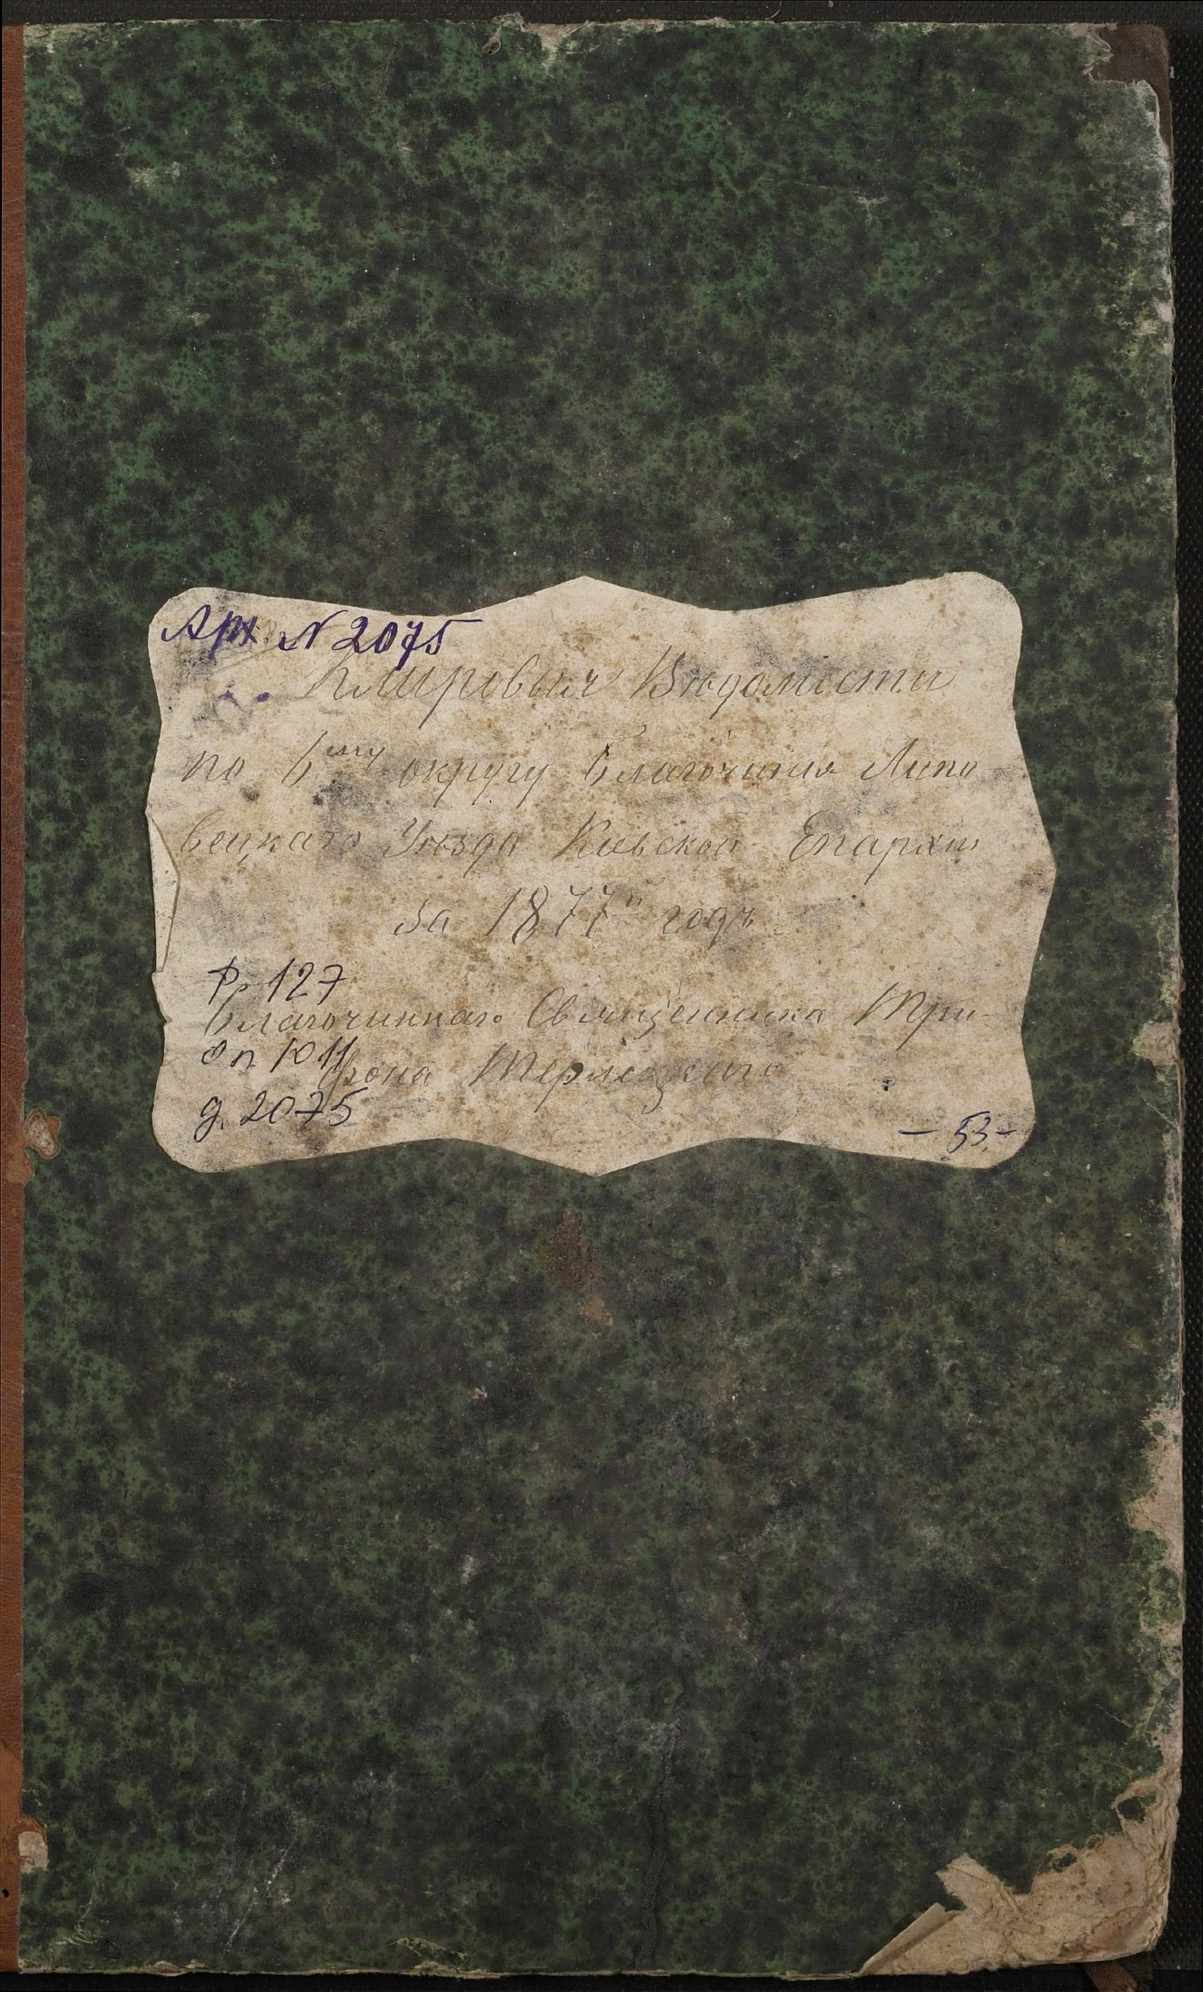 Арх. N 2075
Клировыя Вѣдомости
по 6му округу Благочинія Липо
вецкаго Уѣзда Кіевской Епархіи
За 1877й годъ
Ф. 127
Благочиннаго Священника Три-
Оп 1011
фона Терлецкаго
д. 2075
- 53 -